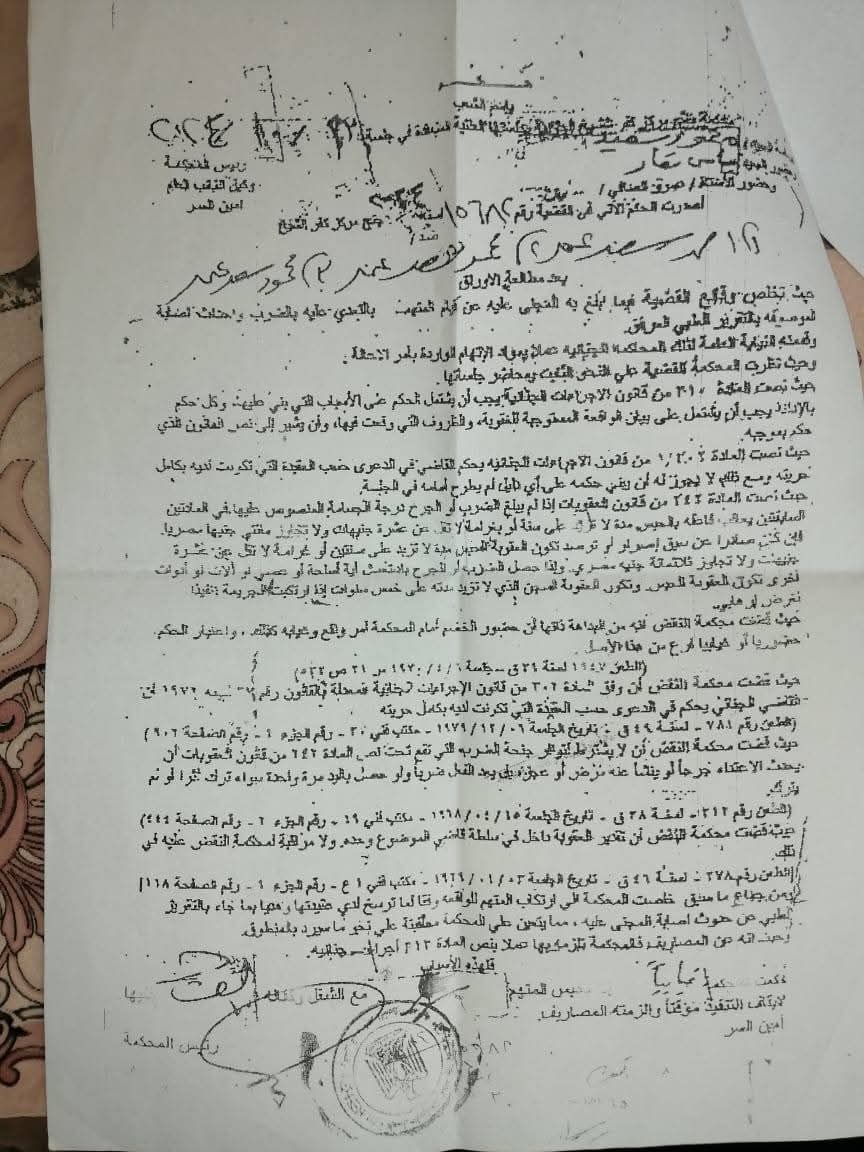 حكم
باسم الشعب
وحضور الأستاذ /
رئيس المحكمة
وكيل النائب العام
امين السر
اصدرت الحكم الآتي في القضية رقم لسنة جنح مركز كفر الشيخ
ضد /
بعد مطالعة الاوراق
حيث تخلص وقائع القضية فيما ابلغ به المجني عليه عن قيام المتهم بالتعدي عليه بالضرب واحداث اصابة
الموصوفه بالتقرير الطبي المرفق.
وقدمته النيابة العامة لتلك المحكمة الجنائية عملا بمواد الإتهام الواردة بأمر الاحالة.
وحيث نظرت المحكمة القضية علي النحو الثابت بمحاضر جلساتها.
حيث نصت المادة ٣١٠ من قانون الاجراءات الجنائية يجب أن يشتمل الحكم على الأسباب التي بني عليها، وكل حكم
بالإدانة يجب أن يشتمل على بيان الواقعة المستوجبة للعقوبة، والظروف التي وقعت فيها، وأن يشير إلى نص القانون الذي
حكم بموجبه
حيث نصت المادة ١/٣٠٢ من قانون الاجراءات الجنائيه يحكم القاضي في الدعوى حسب العقيدة التي تكونت لديه بكامل
حريته ومع ذلك لا يجوز له أن يبني حكمه على أي دليل لم يطرح أمامه في الجلسة
حيث نصت المادة ٢٤٢ من قانون العقوبات إذا لم يبلغ الضرب أو الجرح درجة الجسامة المنصوص عليها في المادتين
السابقتين يعاقب فاعله بالحبس مدة لا تزيد على سنة أو بغرامة لا تقل عن عشرة جنيهات ولا تجاوز مائتي جنيها مصريا.
فإن كان صادرا عن سبق إصرار أو ترصد تكون العقوبة الحبس مدة لا تزيد على سنتين أو غرامة لا تقل عن عشرة
جنيهات ولا تجاوز ثلاثمائة جنيه مصري. وإذا حصل الضرب أو الجرح باستعمال أية أسلحة أو عصي أو آلات أو أدوات
أخرى تكون العقوبة الحبس. وتكون العقوبة السجن الذي لا تزيد مدته على خمس سنوات إذا ارتكبت الجريمة تنفيذا
لغرض إرهابي.
حيث قضت محكمة النقض انه من البداهة ذاتها أن حضور الخصم أمام المحكمة أمر واقع وغيابه كذلك. واعتبار الحكم
حضوريا أو غيابيا فرع من هذا الأصل.
(الطعن ١٩٤٧ لسنة ٣٩ ق - جلسة ١٩٧٠/٤/٦ س ٢١ ص ٥٣٣)
حيث قضت محكمة النقض أن وفق المادة ٣٠٢ من قانون الإجراءات الجنائية المعدلة بالقانون رقم لسنة أن
القاضي الجنائي يحكم في الدعوى حسب العقيدة التي تكونت لديه بكامل حريته
(الطعن رقم ٧٨١ - لسنة ٤٩ ق - تاريخ الجلسة ١٩٧٩/١٢/٠٦ - مكتب فني ٣٠ - رقم الجزء ١ - رقم الصفحة ٩٠٦)
حيث قضت محكمة النقض أن لا يشترط لتوافر جنحة الضرب التي تقع تحت نص المادة ٢٤٢ من قانون العقوبات أن
يحدث الاعتداء جرحاً أو ينشأ عنه مرض أو عجز بل يعد الفعل ضرباً ولو حصل باليد مرة واحدة سواء ترك أثرا أو لم
يترك
(الطعن رقم ٣١٢ - لسنة ٣٨ ق - تاريخ الجلسة ١٩٦٨/٠٤/١٥ - مكتب فني ١٩ - رقم الجزء ٢ - رقم الصفحة ٤٤٤)
حيث قضت محكمة النقض أن تقدير العقوبة داخل في سلطة قاضي الموضوع وحده، ولا مراقبة لمحكمة النقض عليه في
ذلك
ومن جماع ما سبق خلصت المحكمة الي ارتكاب المتهم للواقعة وفقا لما ترسخ لدي عقيدتها وهديا بما جاء بالتقرير
الطبي من حدوث اصابة المجني عليه، مما يتعين علي المحكمة معاقبته علي نحو ما سيرد بالمنطوق.
وحيث انه عن المصاريف، فالمحكمة تلزمه بها عملا بنص المادة ٣١٣ أجراءات جنائيه
فلهذه الأسباب
حكمت المحكمة غيابياً بحبس المتهم مع الشغل وكفاله جنيها
لايقاف التنفيذ مؤقتاً والزمته المصاريف.
امين السر
رئيس المحكمة